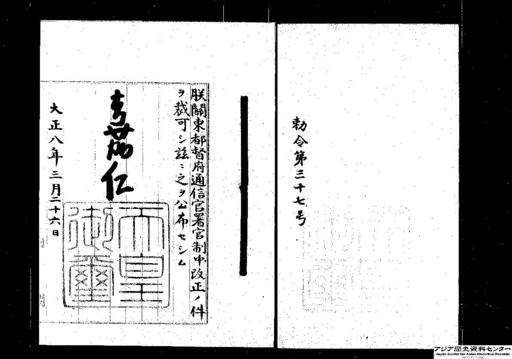 勅令第三十七号
朕關東都督府通信官署官制中改正ノ件
ヲ裁可シ玆ニ之ヲ公布セシム
嘉仁
天皇御璽
大正八年三月二十六日
アジア歴史資料センター
Japan Center for Asian Historical Records